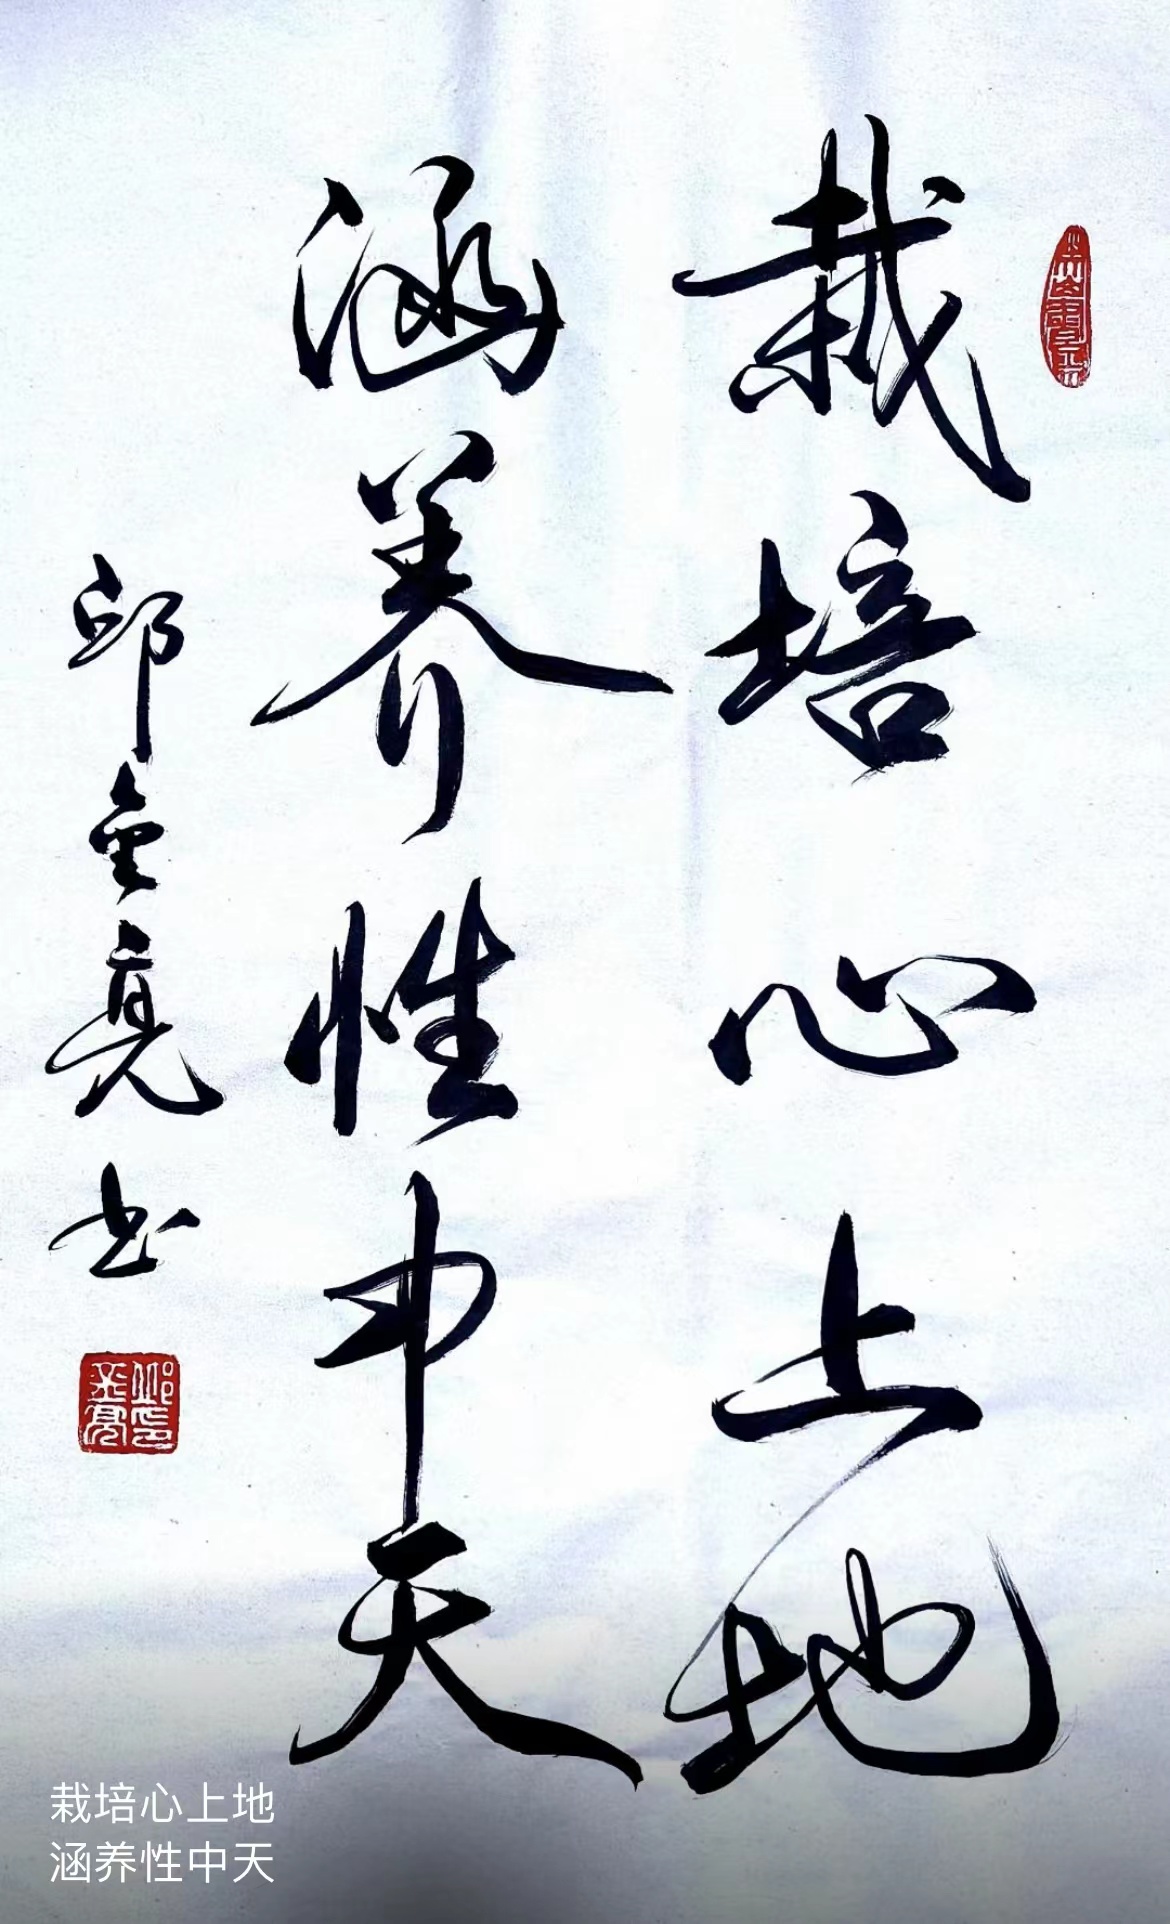 栽培心上地
涵养性中天
邱金亮书
栽培心上地
涵养性中天